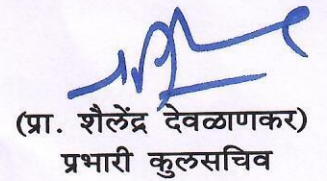 (प्रा. शैलेंद्र देवळाणकर)
प्रभारी कुलसचिव